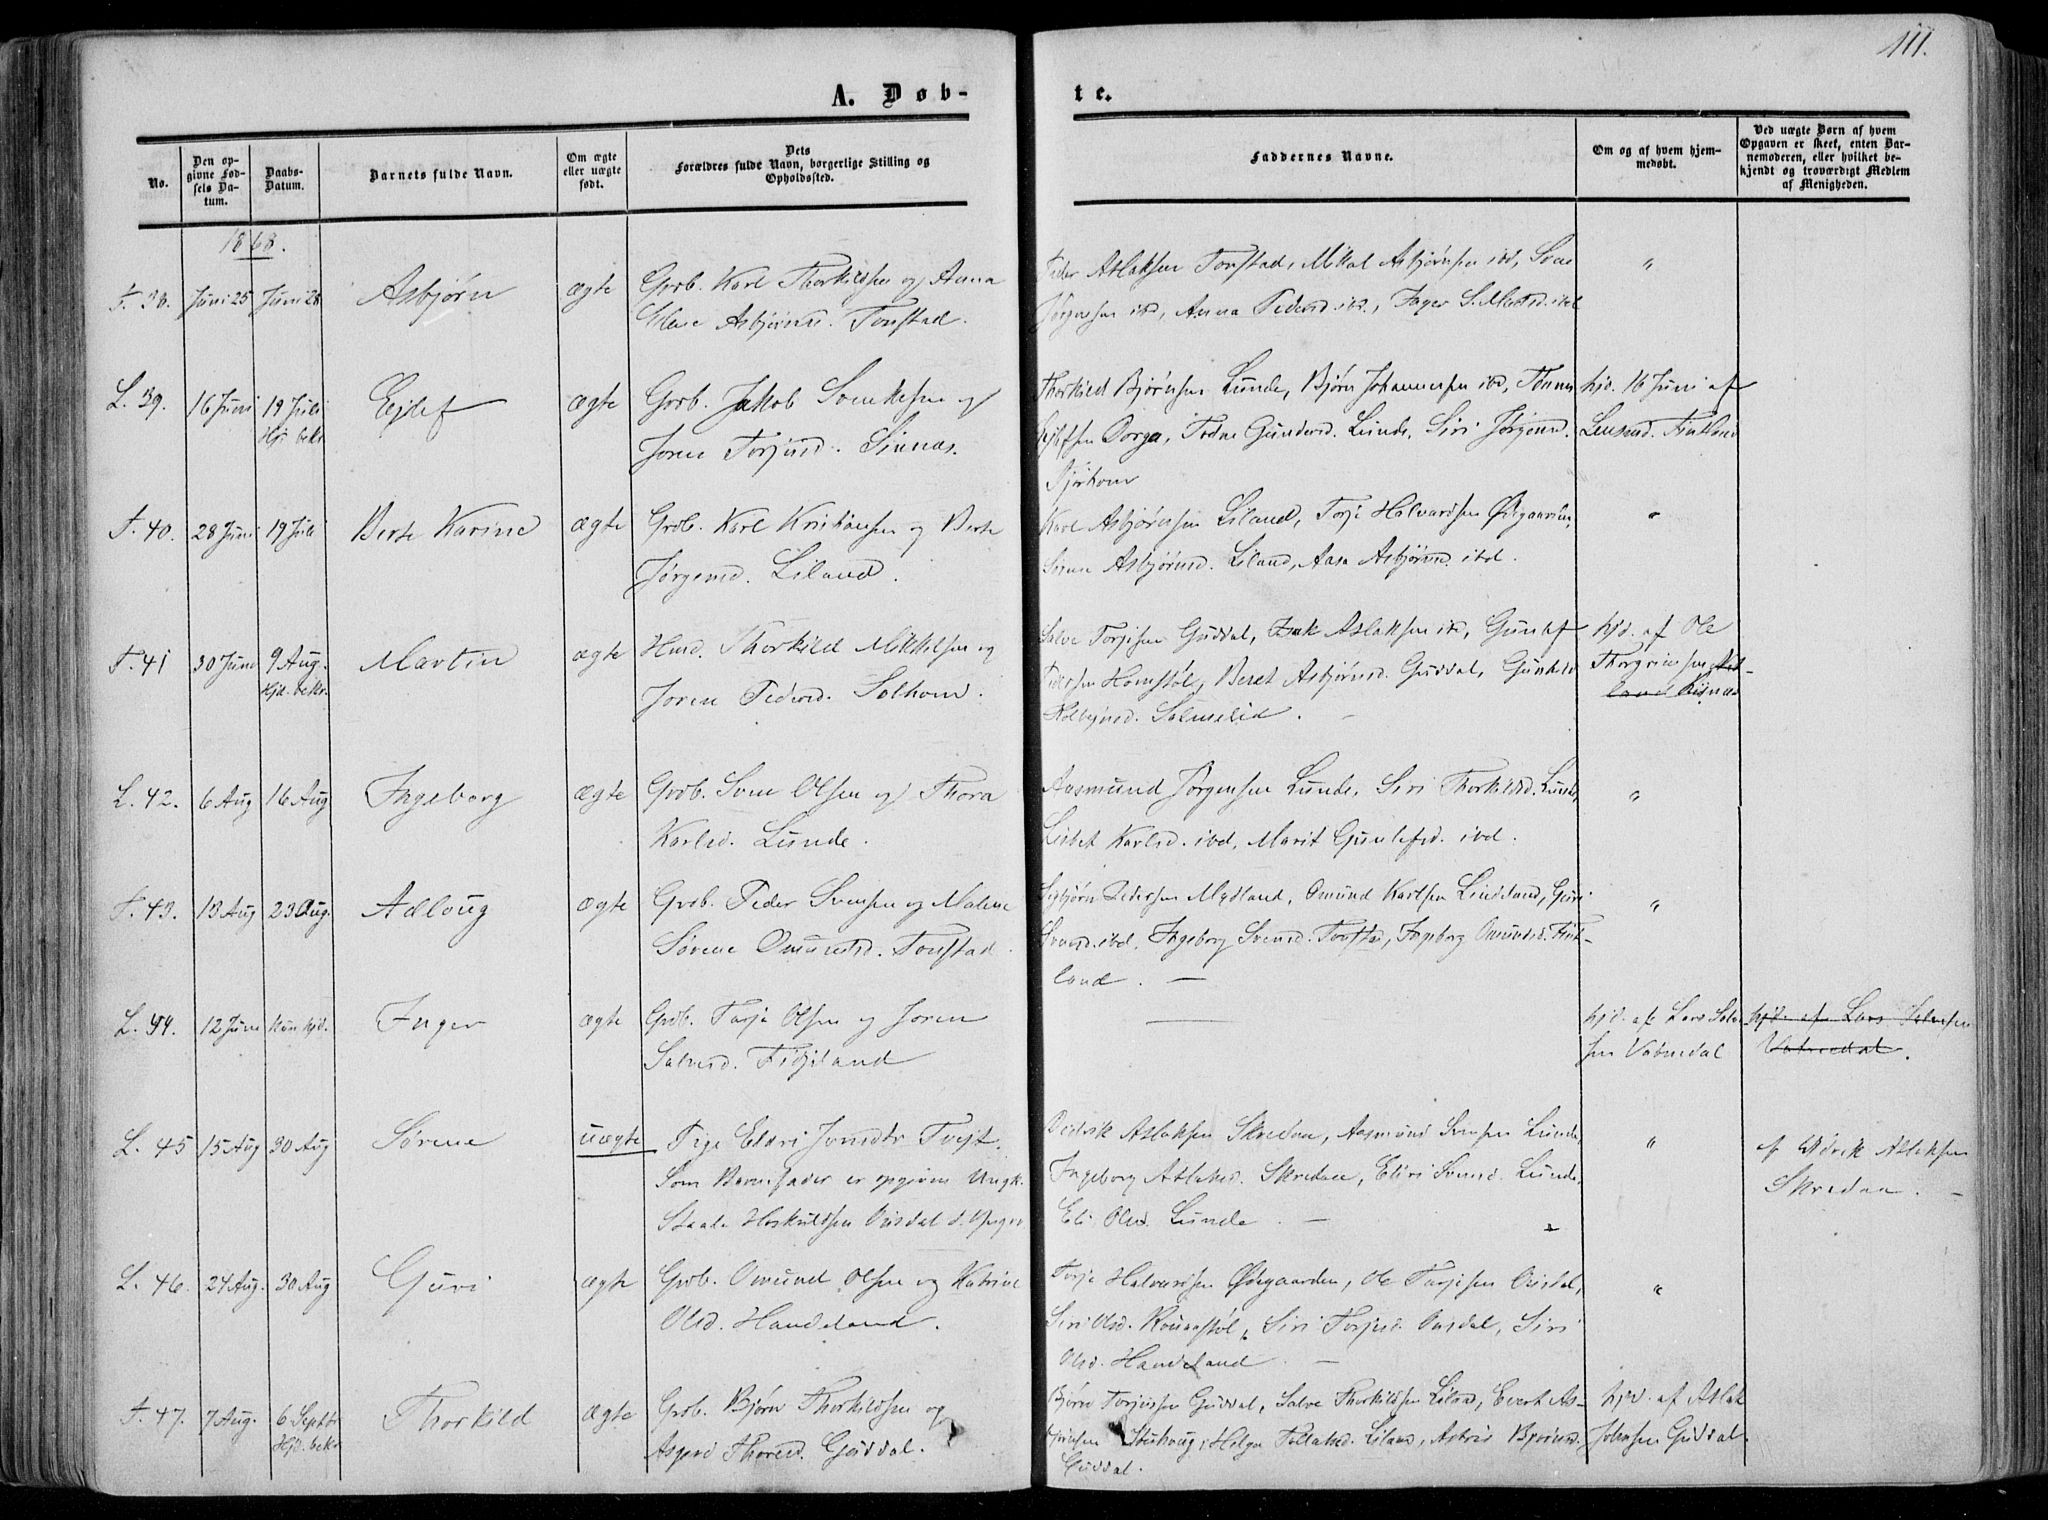 111.
A. Døb-
te.
No.
Den op-
givne Fød-
sels Da-
tum.
Daabs-
Datum.
Barnets fulde Navn.
Om ægte
eller uægte
født.
Dets
Forældres fulde Navn, borgerlige Stilling og
Opholdssted.
Faddernes Navne.
Om og af hvem hjem-
medøbt.
Ved uægte Børn af hvem
Opgaven er skeet, enten Bar-
nemoderen, eller hvilket be-
kjendt og troværdigt Medlem
af Menigheden.
1868.
T. 38. Juni 25 Juni 28 Asbjørn ægte Grdb. Karl Thorkildsen og Anna
Elene Asbjørnsd. Tonstad.
Peder Aslaksen Tonstad, Mikal Asbjørnsen ibd, Sven
Jørgensen ibd, Anna Pedersd. ibd., Inger S. Martsd. ibd
"
L. 39. 16 Juni 19 Juli Ejlef ægte Gdrb. Jakob Svenkesen og
Hjd. bekr.
Joren Torjusd. Sinnæs.
Thorkild Bjørnsen Lunde, Bjørn Johannesen ibd, Tønnes
Ejlefsen Dorga, Todne Gundersd. Lunde, Siri Jørgensd.
Bjørhom
hjd. 16 Juni af
Lensmd. Fintland
T. 40. 28 Juni 19 Juli Berte Karine ægte Grdb. Karl Kristiansen og Berte
Jørgensd. Liland.
Karl Asbjørnsen Liland, Torje Halvardsen Ødegaarden,
Sirene Asbjørnsd. Liland, Aasa Asbjørnsd. ibd.
"
T. 41 30 Juni 9 Aug. Martin ægte Husd. Thorkild Mikkelsen og
Hjd. bekr.
Joren Pedersd. Solhom.
Salve Torjisen Guddal, Isak Aslaksen ibd, Gunlef
Pedersen Homstøl, Beret Asbjørnsd. Guddal, Gunhild
Kolbjørnsd. Salmelid.
hjd. af Ole
Thorgrimsen
L. 42. 6 Aug 16 Aug Ingeborg ægte Grdb. Sven Olsen og Thora
Karlsd. Lunde.
Aasmund Jørgensen Lunde, Siri Thorkildsd. Lunde,
Lisbet Karlsd. ibd, Marit Gunlefsd. ibd.
"
T. 43. 13 Aug 23 Aug. Adloug ægte Grdb. Peder Svensen og Malene
Sørene Omundsd. Tonstad.
Sigbjørn Pedersen Mydland, Omund Karlsen Lindland, Guri
Svensd. ibd, Ingeborg Svensd. Tonstad, Ingeborg Omundsd. Fint-
land. —
"
L. 44. 12 Juni kun hjd. Inger ægte Grdb. Tarje Olsen og Joren
Salvesd. Fidjeland
—
hjd. af Lars Salve-
sen Vatnedal
hjd. af Lars Salvesen
Vatnedal.
L. 45 15 Aug 30 Aug Sørene uægte Pige Eldri Jonsdtr Tvejt.
Som Barnefader er opgiven Ungk.
Staale Hoskuldsen Ousdal d. yngre
Didrik Aslaksen Skredaa, Aasmund Svensen Lunde,
Ingeborg Aslaksd. Skredaa, Eldri Svensd. Lunde,
Eli Olsd. Lunde. —
"
af Didrik Aslaksen
Skredaa. —
L. 46. 24 Aug. 30 Aug Guri ægte Grdb. Omund Olsen og Katrine
Olsd. Haudeland.
Torje Halvardsen Ødegaarden, Ole Tarjesen Ousdal,
Siri Olsd. Rounstøl, Siri Torjesd. Ousdal, Siri
Olsd. Haudeland. —
"
T. 47. 7 Aug. 6 Septbr Thorkild ægte Grdb. Bjørn Thorkildsen og
Hjd. bekr.
Asgerd Thoresd. Guddal.
Bjørn Torjussen Guddal, Salve Thorkildsen Liland, Evert As-
bjørnsen Stuhoug, Helga Tollaksd. Liland, Astrid Bjørnsd.
Guddal.
hjd. af Aslak
Johnsen Guddal.